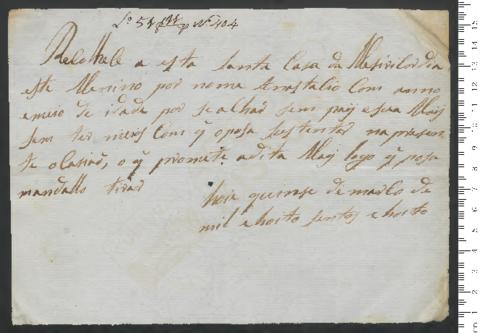 Lº 51 nº 404
Recolhese a esta Santa Casa da Mesiricordia
este Menino por nome Anastalio Com anno
e meio de idade por se alhar sem pay e sua Maÿ
sem ter meios Com q̃ o posa sustentar na presen
te o Casião, o q̃ promete a dita Maÿ logo q̃ posa
mandallo tirar
hoie quinse de março de
mil e hoito sentos e hoito